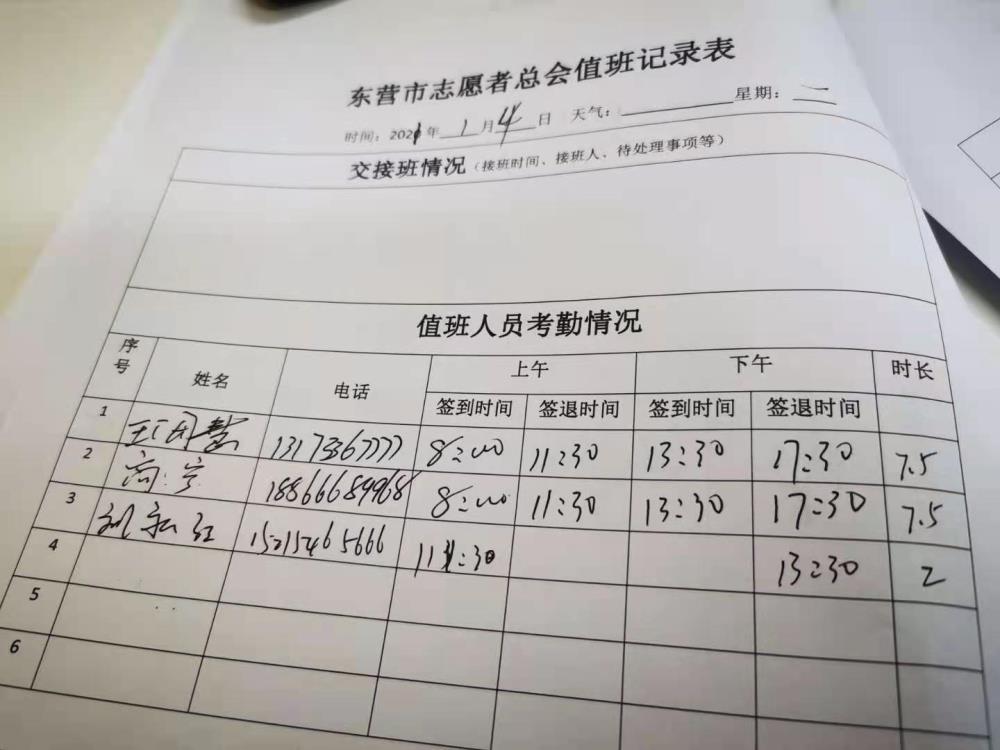 东营市志愿者总会值班记录表
时间：2021年 1 月 4 日 天气： 星期： 一
交接班情况（接班时间、接班人、待处理事项等）
值班人员考勤情况
序号 姓名 电话 上午 下午 时长
签到时间 签退时间 签到时间 签退时间
1 13173367777 8:00 11:30 13:30 17:30 7.5
2 18866684968 8:00 11:30 13:30 17:30 7.5
3 15215465666 11:30 13:30 2
4
5
6